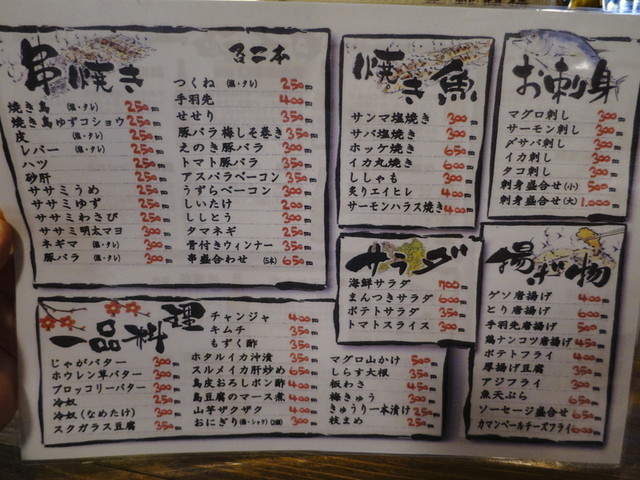 串焼き 各二本
焼き鳥 (塩・タレ) 250円
焼き鳥ゆずコショウ 250円
皮 (塩・タレ) 250円
レバー (塩・タレ) 250円
ハツ 250円
砂肝 250円
ササミうめ 250円
ササミゆず 250円
ササミわさび 250円
ササミ明太マヨ 300円
ネギマ (塩・タレ) 300円
豚バラ (塩・タレ) 300円
つくね (塩・タレ) 250円
手羽先 400円
せせり 350円
豚バラ梅しそ巻き 350円
えのき豚バラ 300円
トマト豚バラ 350円
アスパラベーコン 350円
うずらベーコン 300円
しいたけ 200円
ししとう 300円
タマネギ 250円
骨付きウィンナー 350円
串盛合わせ (5本) 650円
焼き魚
サンマ塩焼き 300円
サバ塩焼き 300円
ホッケ焼き 650円
イカ丸焼き 650円
ししゃも 300円
炙りエイヒレ 400円
サーモンハラス焼き 400円
お刺身
マグロ刺し 300円
サーモン刺し 300円
〆サバ刺し 300円
イカ刺し 300円
タコ刺し 300円
刺身盛合せ(小) 500円
刺身盛合せ(大) 1,000円
サラダ
海鮮サラダ 700円
まんつきサラダ 600円
ポテトサラダ 350円
トマトスライス 300円
揚げ物
ゲソ唐揚げ 400円
とり唐揚げ 600円
手羽先唐揚げ 500円
鶏ナンコツ唐揚げ 450円
ポテトフライ 400円
厚揚げ豆腐 350円
アジフライ 300円
魚天ぷら 650円
ソーセージ盛合せ 650円
カマンベールチーズフライ 600円
一品料理
じゃがバター 300円
ホウレン草バター 350円
ブロッコリーバター 350円
冷奴 250円
冷奴(なめたけ) 300円
スクガラス豆腐 350円
チャンジャ 400円
キムチ 350円
もずく酢 350円
ホタルイカ沖漬 350円
スルメイカ肝炒め 650円
鳥皮おろしポン酢 350円
島豆腐のマース煮 400円
山芋ザクザク 400円
おにぎり(梅・シャケ)(2個) 300円
マグロ山かけ 500円
しらす大根 350円
板わさ 450円
梅きゅう 300円
きゅうり一本漬け 250円
枝まめ 250円